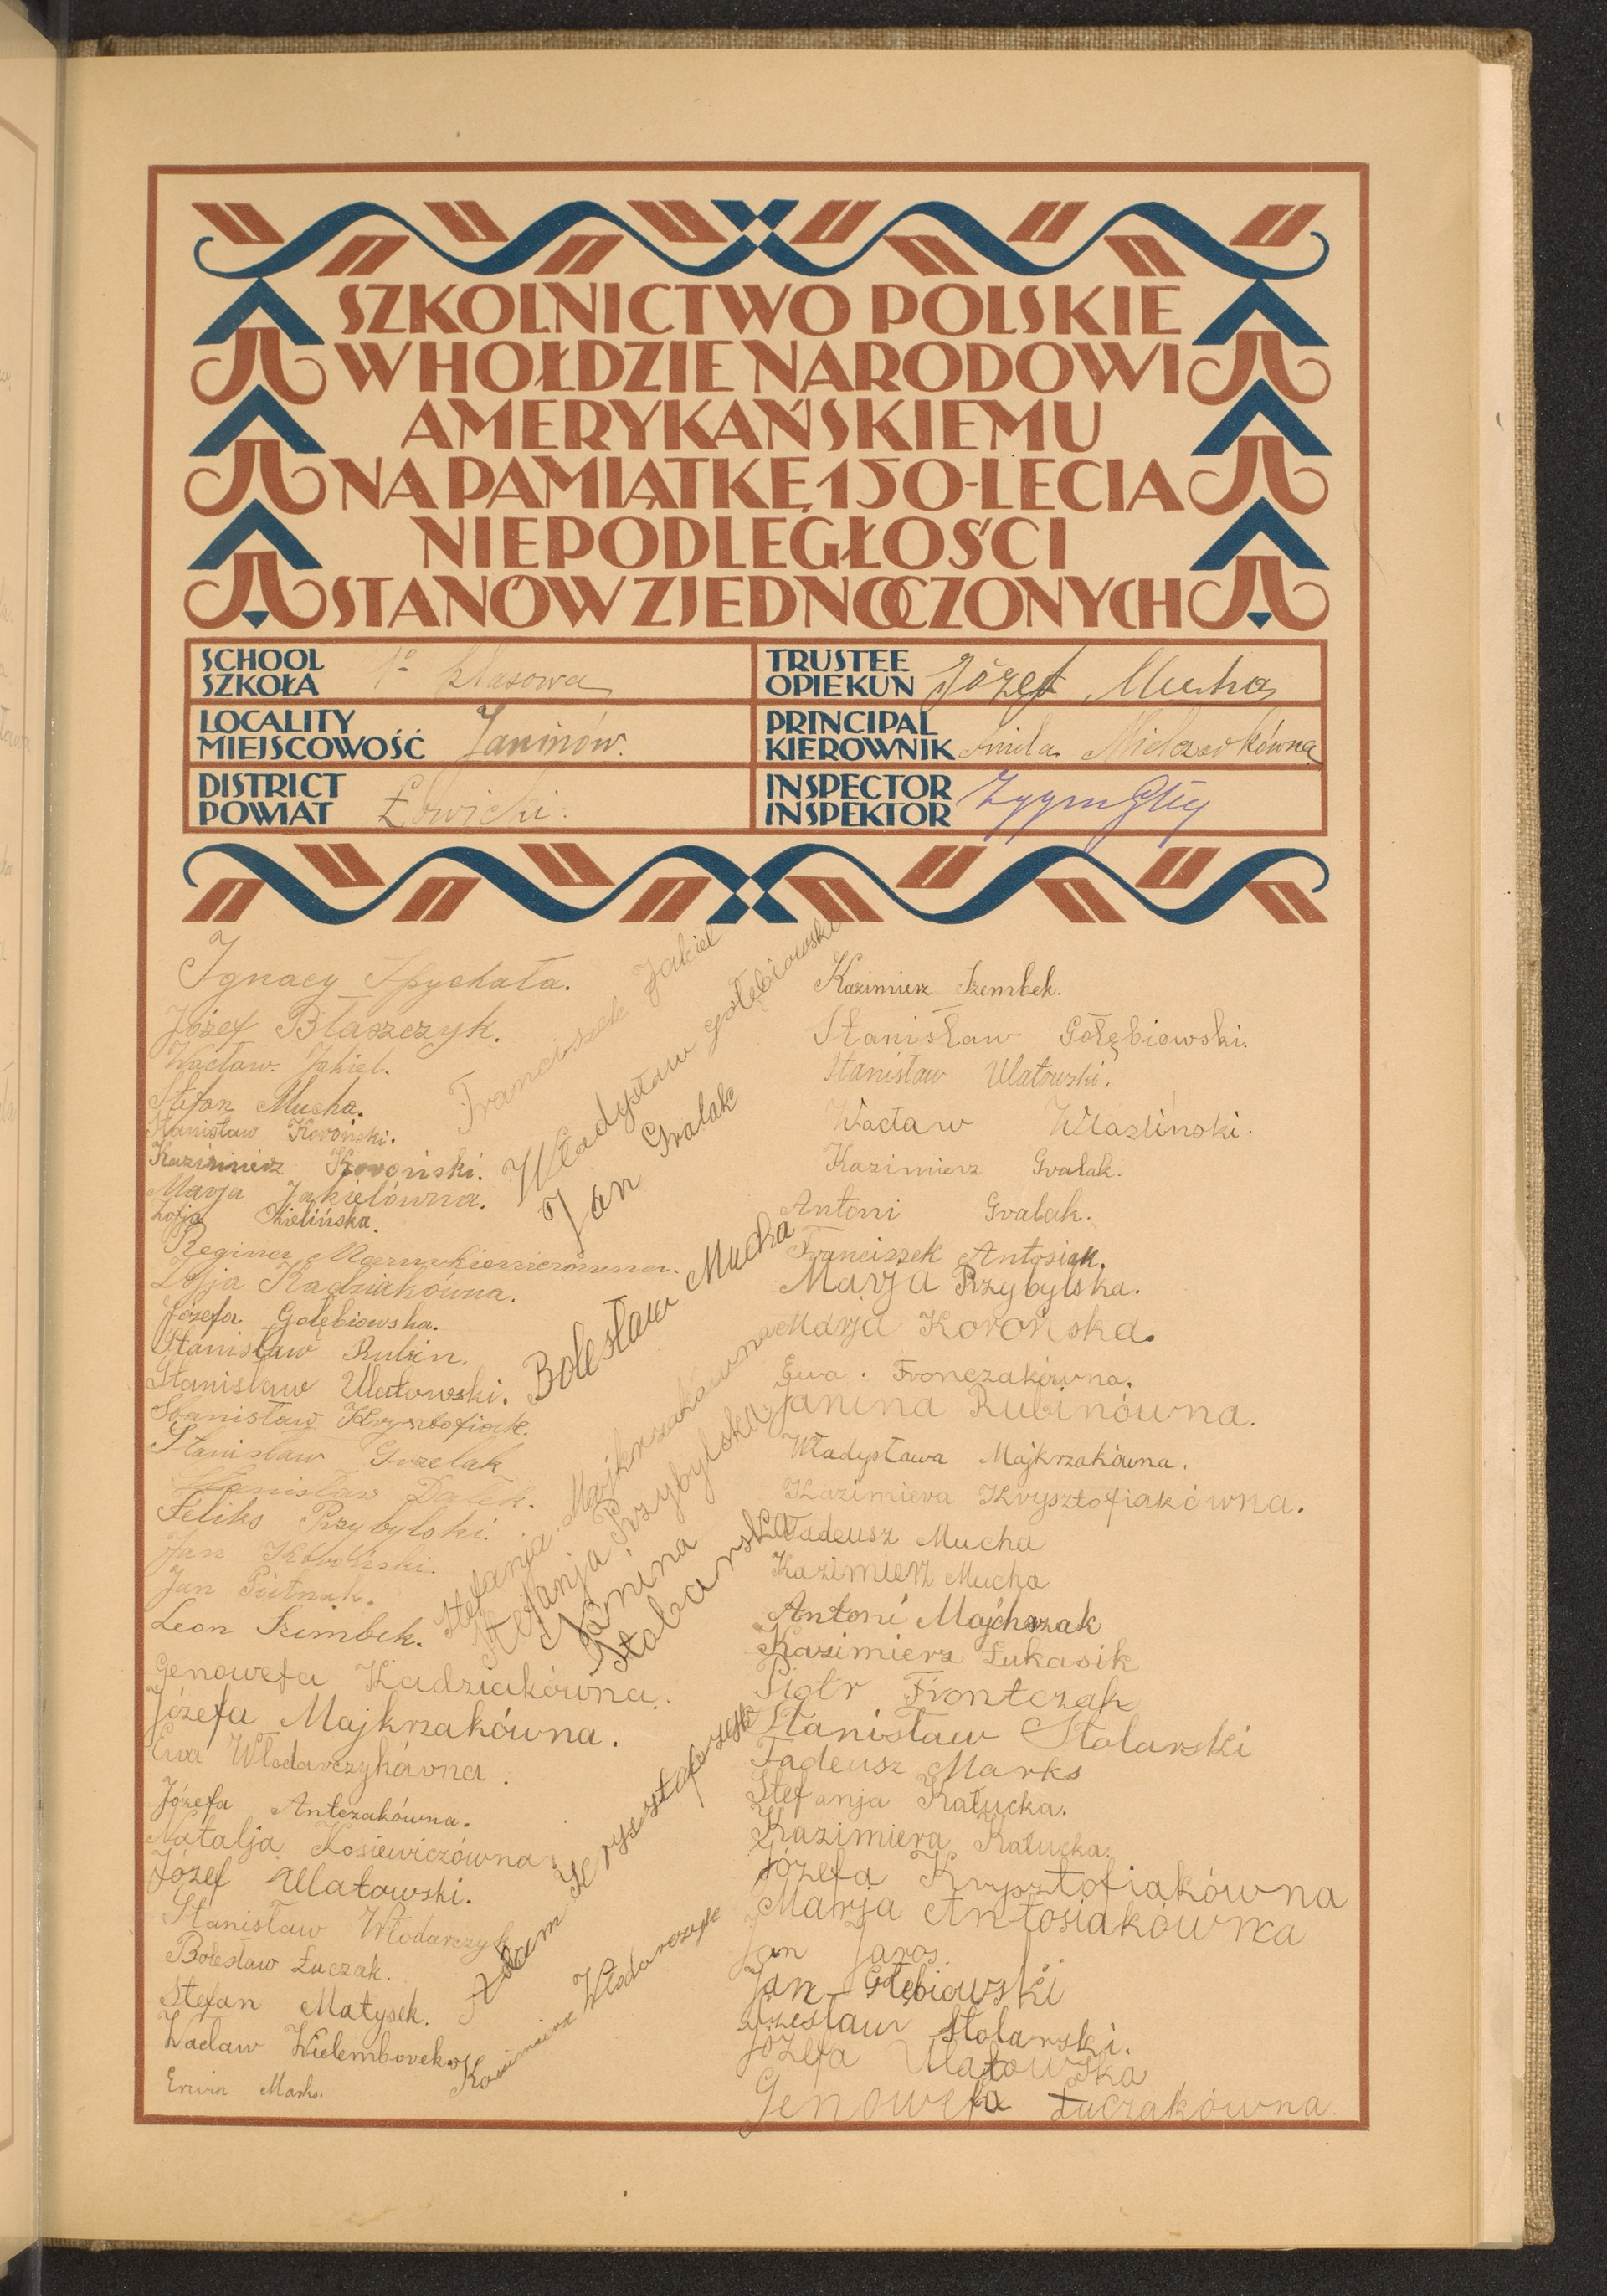 SZKOLNICTWO POLSKIE
W HOŁDZIE NARODOWI
AMERYKAŃSKIEMU
NA PAMIĄTKĘ 150-LECIA
NIEPODLEGŁOŚCI
STANÓW ZJEDNOCZONYCH
SCHOOL
SZKOŁA 1º klasowa
LOCALITY
MIEJSCOWOŚĆ Janinów.
DISTRICT
POWIAT Łowicki.
TRUSTEE
OPIEKUN Józef Mucha
PRINCIPAL
KIEROWNIK Mielczarkówna
INSPECTOR
INSPEKTOR
Ignacy Spychała.
Józef Błaszczyk.
Wacław Jakiel.
Stefan Mucha.
Stanisław Koroński.
Kazimierz Koroński.
Marja Jakielówna.
Zofja Zielińska.
Regina
Zofja Kadziakówna.
Józefa Gołębiowska.
Stanisław Rubin.
Stanisław Ulatowski.
Stanisław Krysztofiak.
Stanisław Grzelak
Stanisław Dałek.
Feliks Przybylski.
Jan Koroński.
Jan
Leon Szimbek.
Genowefa Kadziakówna.
Józefa Majkrzakówna.
Ewa Włodarczykówna.
Józefa Antczakówna.
Natalja Kosiewiczówna.
Józef Ulatowski.
Stanisław Włodarczyk
Bolesław Łuczak.
Stefan Matysek.
Wacław Wielemborek
Erwin Marks.
Franciszek Jakiel
Władysław Gołębiowski
Jan Gralak
Bolesław Mucha
Stefanja Majkrzakówna
Stefanja Przybylska
Janina
Stolarska
Adam
Kazimierz Włodarczyk
Kazimierz Szembek.
Stanisław Gołębiowski.
Stanisław Ulatowski.
Wacław Właźliński.
Kazimierz Gralak.
Antoni Gralak.
Franciszek Antosiak.
Marja Przybylska.
Marja Korońska.
Ewa. Fronczakówna.
Janina Rubinówna.
Władysława Majkrzakówna.
Kazimiera Krysztofiakówna.
Tadeusz Mucha
Kazimierz Mucha
Antoni Majchszak
Kazimierz Łukasik
Piotr Frontczak
Stanisław Stolarski
Tadeusz Marks
Stefanja Kałucka.
Kazimiera Kałucka.
Józefa Krysztofiakówna
Marja Antosiakówna
Jan Jaros
Jan Głębiowski
Czesław Stolarski.
Józefa Ulatowska
Genowefa Łuczakówna.